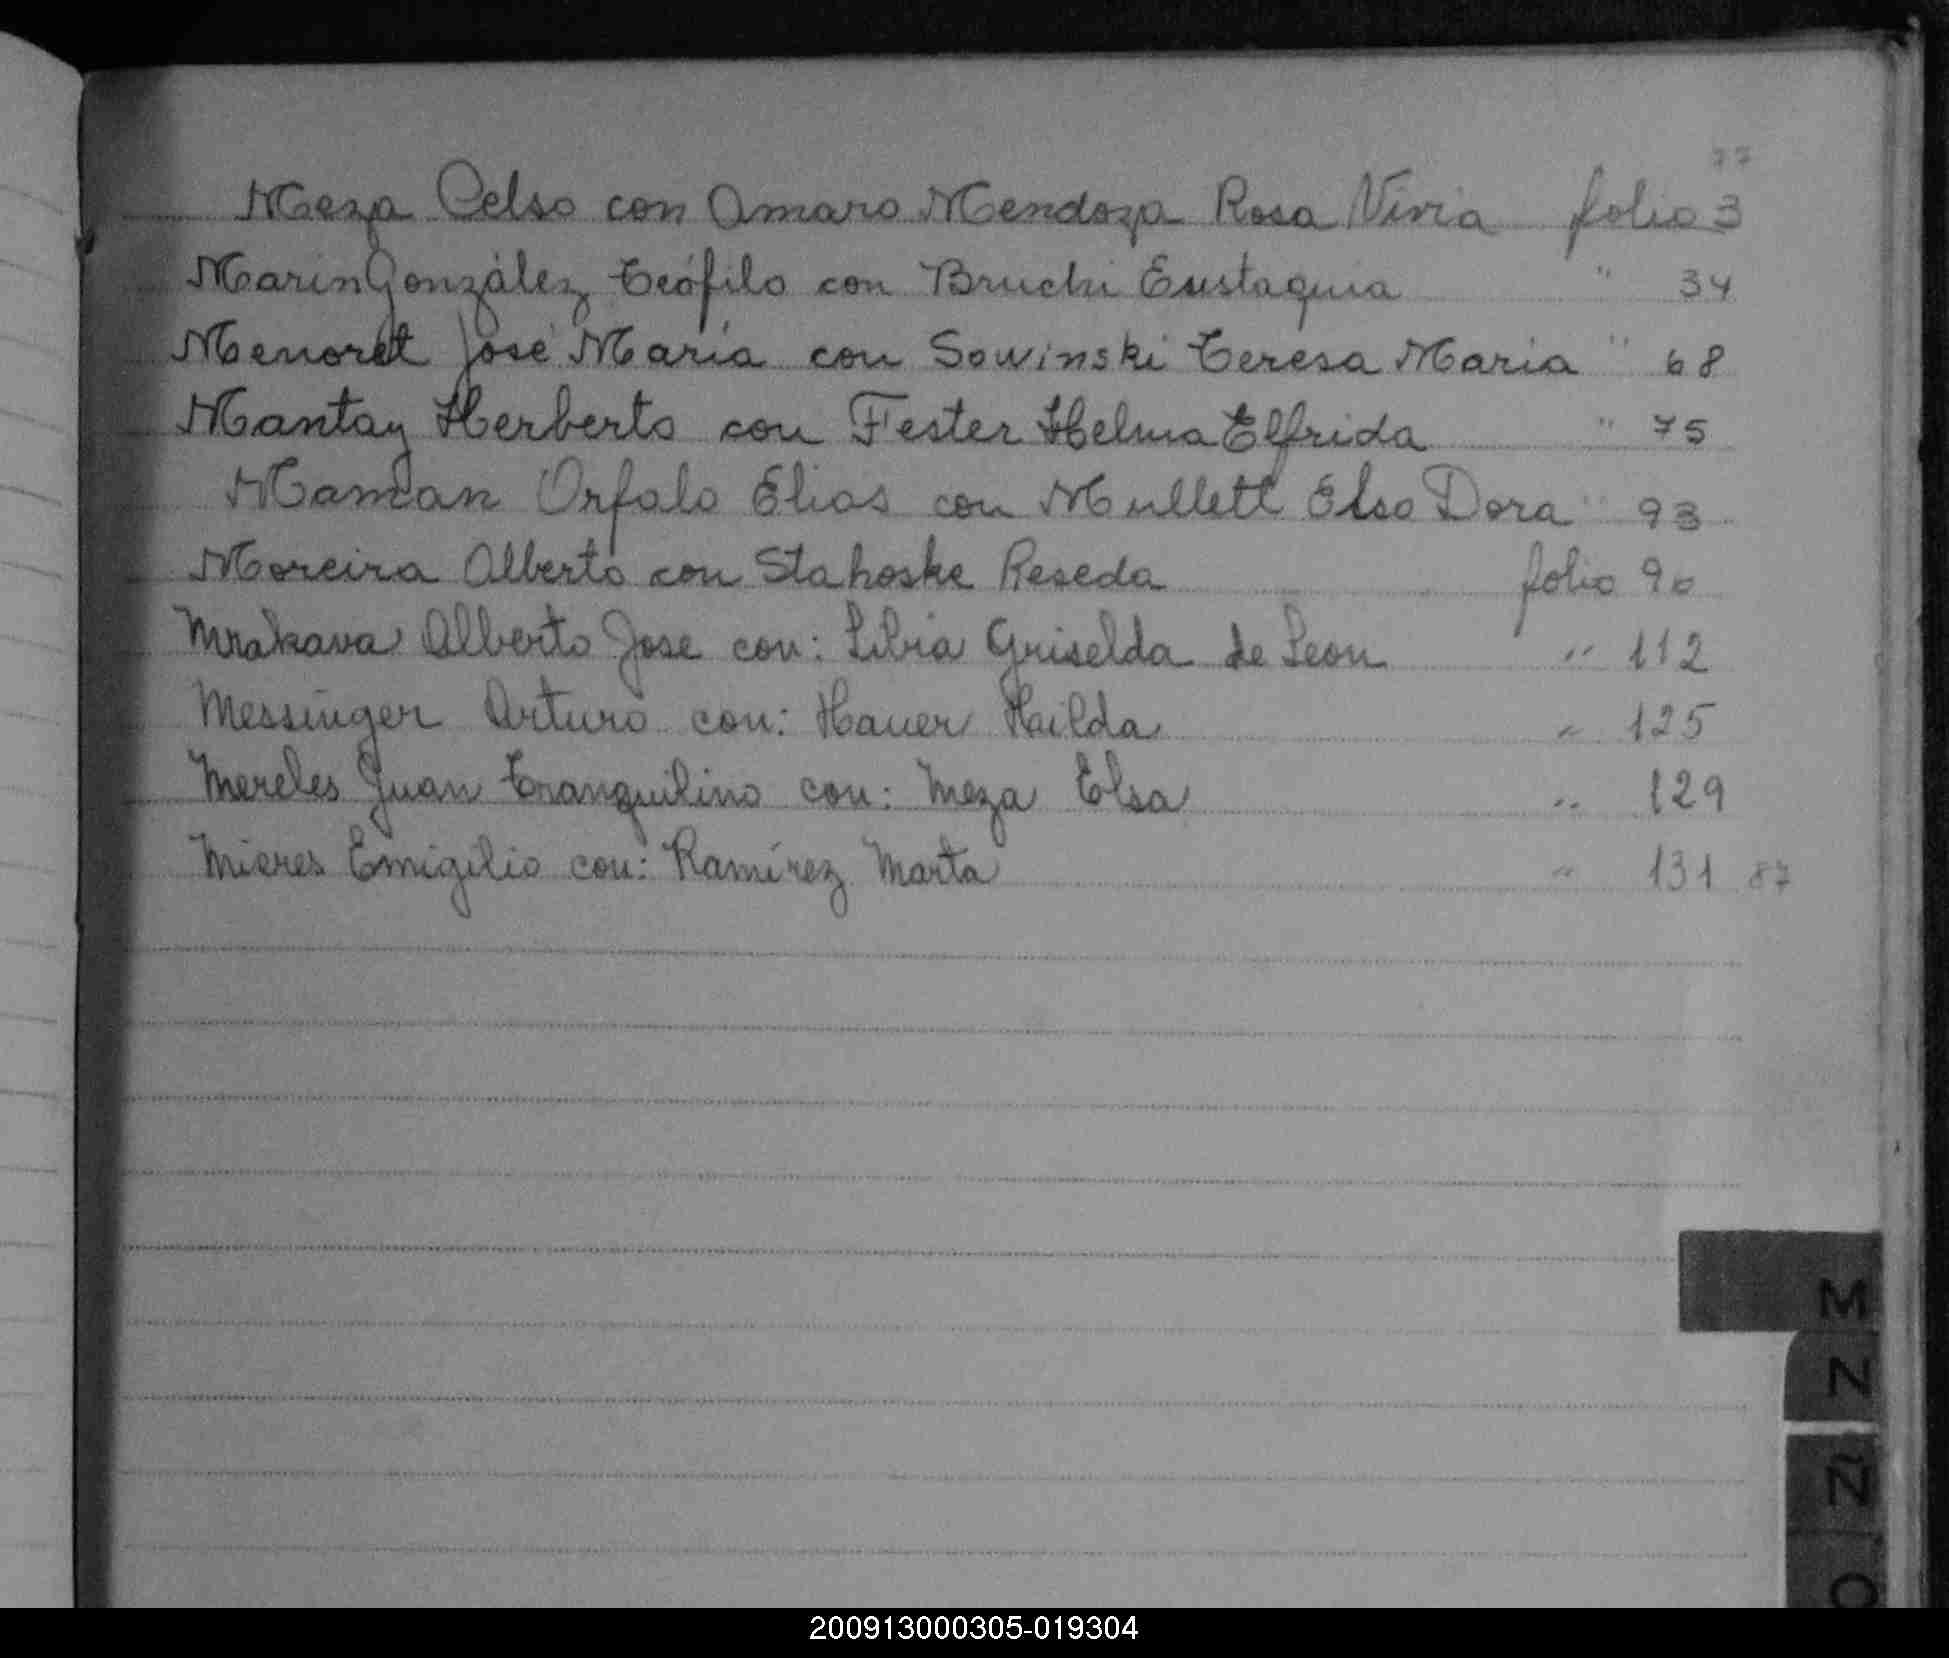 77
Meza Celso con Amaro Mendoza Rosa Vivia folio 3
Marin González Teófilo con Bruchi Eustaquia " 34
Menoret José María con Sowinski Teresa Maria " 68
Mantay Herberto con Fester Helma Elfrida " 75
Maman Orfalo Elias con Mullett Elsa Dora " 93
Moreira Alberto con Stahoske Reseda folio 96
Mrakava Alberto Jose con: Libia Griselda de Leon " 112
Messinger Arturo con: Hauer Hilda " 125
Mereles Juan Tranquilino con: Meza Elsa " 129
Mieres Emigilio con: Ramírez Marta " 131 87
M
N
Ñ
O
200913000305-019304